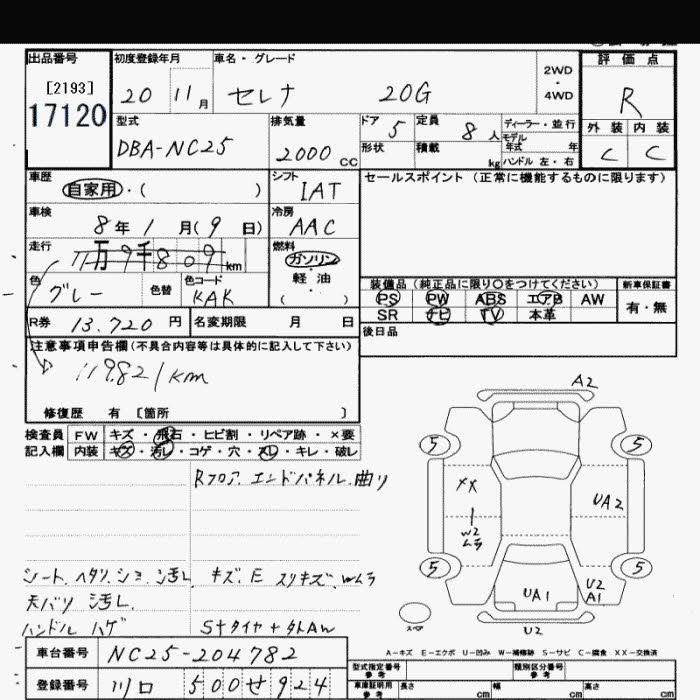 出品番号 初度登録年月 車名・グレード 評価点
[2193] 2WD
17120 20 11月 セレナ 20G 4WD R
型式 排気量 ドア 定員 ディーラー・並行 外装 内装
DBA-NC25 2000cc 5 8人 モデル年式 年 C C
形状 積載 kg ハンドル 左・右
車歴 シフト セールスポイント(正常に機能するものに限ります)
自家用・( ) IAT
車検 冷房
8年1月(9日) AAC
走行 燃料
11万9千809km ガソリン
色 色替 色コード 軽油
グレー KAK (・)
装備品(純正品に限り○をつけてください) 新車保証書
PS PW ABS エアB AW 有・無
SR ナビ TV 本革
R券 13,720円 名変期限 月 日 後日品
注意事項申告欄(不具合内容等は具体的に記入して下さい)
119821km
修復歴 有 [箇所 ]
検査員 FW キズ・飛石・ヒビ割・リペア跡・×要
記入欄 内装 キズ・汚レ・コゲ・穴・スレ・キレ・破レ
Rフロア.エンドパネル.曲り
シート.ヘタリ.シミ.汚レ キズ.E スリキズ.Wムラ
天バリ 汚レ
ハンドル ハゲ S+タイヤ+外AW
A2
5 5
XX UA2
W2
ムラ
5 5
UA1 U2
A1
スペア U2
A-キズ E-エクボ U-凹み W-補修跡 S-サビ C-腐食 XX-交換済
車台番号 NC25-204782
型式指定番号 参考 類別区分番号 参考
登録番号 川口 500せ924
車庫証明用 参考 長さ cm 幅 cm 高さ cm